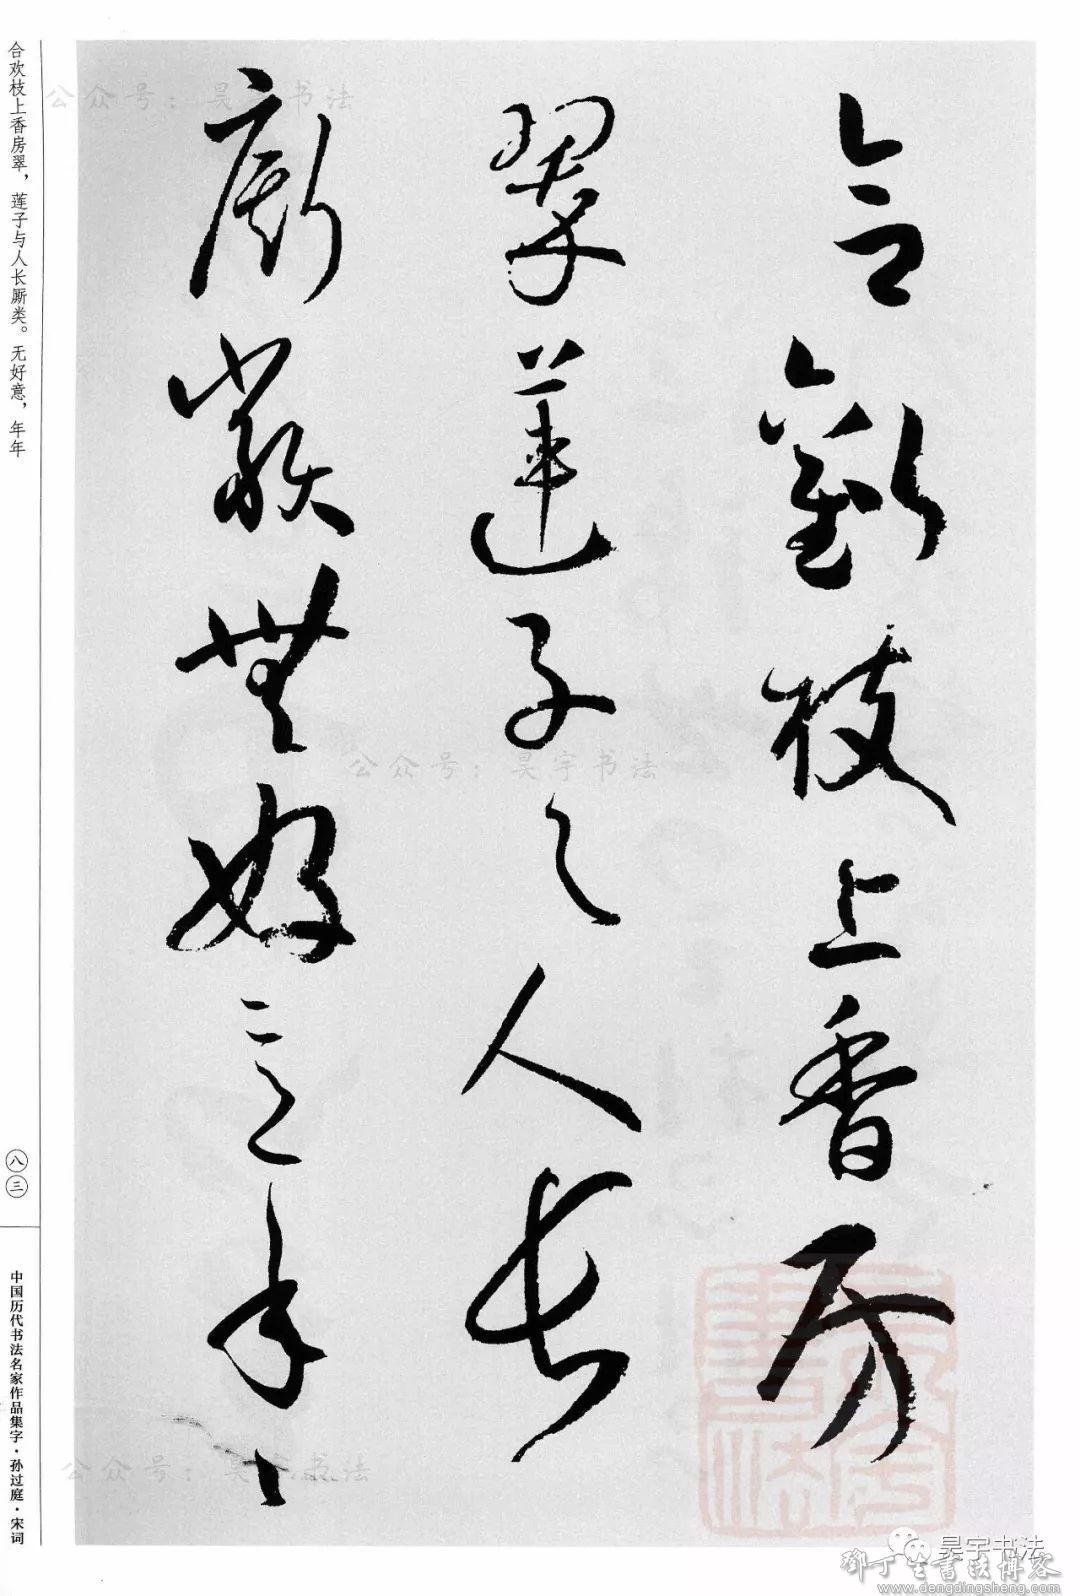 合欢枝上香房
翠莲子与人长
厮类无好意年年
合欢枝上香房翠，莲子与人长厮类。无好意，年年
八三
中国历代书法名家作品集字·孙过庭·宋词
公众号：昊宇书法
公众号：昊宇书法
公众号：昊宇书法
昊宇书法
邓丁生书法博客
www.dengdingsheng.com